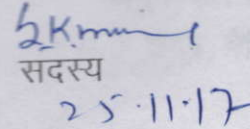 सदस्य
25.11.17